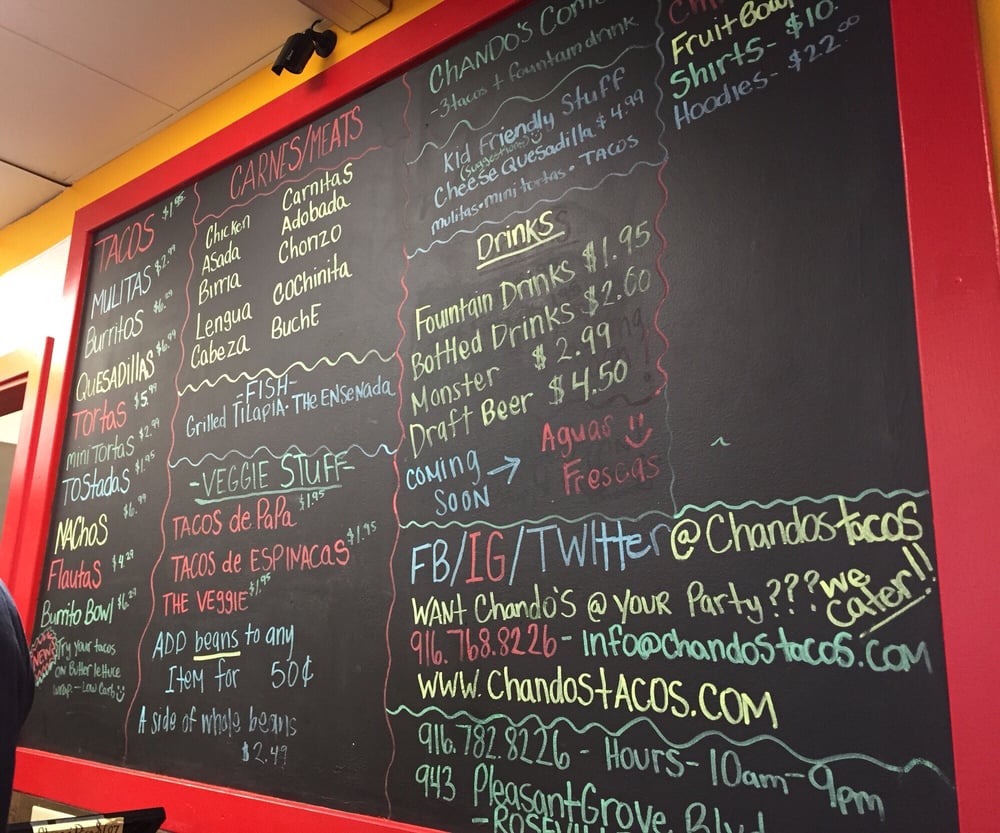 TACOS $1.95
MULITAS $2.99
Burritos
QUESADILLAS $6.99
TORTAS $5.99
mini Tortas $2.99
TOStadas $1.95
NACHOS
Flautas $4.29
Burrito Bowl
NEW
Try your tacos
ON Butter lettuce
wrap - Low Carb
CARNES/MEATS
Chicken
Asada
Birria
Lengua
Cabeza
Carnitas
Adobada
Chorizo
COChinita
BuchE
-FISH-
Grilled TILAPIA · THE ENSENADA
-VEGGIE STUFF-
TACOS de PaPa $1.95
TACOS de ESPINACAS $1.95
THE VEGGIE $1.95
ADD beans to any
Item for 50¢
A side of whole beans
$2.49
CHANDO'S
-3 tacos + fountain drink
Kid Friendly Stuff
(suggestions)
Cheese Quesadilla $4.99
mulitas · mini tortas · TACOS
Drinks
Fountain Drinks $1.95
Bottled Drinks $2.00
Monster $2.99
Draft Beer $4.50
COMING
SOON
Aguas
Frescas
Fruit Bowl
Shirts - $10.
Hoodies - $22.00
FB/IG/TWItter @Chandostacos
WANT Chando's @ YOUR Party??? we
cater!!
916.768.8226 - info@chandostacos.com
www.ChandosTACOS.COM
916.782.8226 - Hours - 10am - 9pm
943 Pleasant Grove Blvd